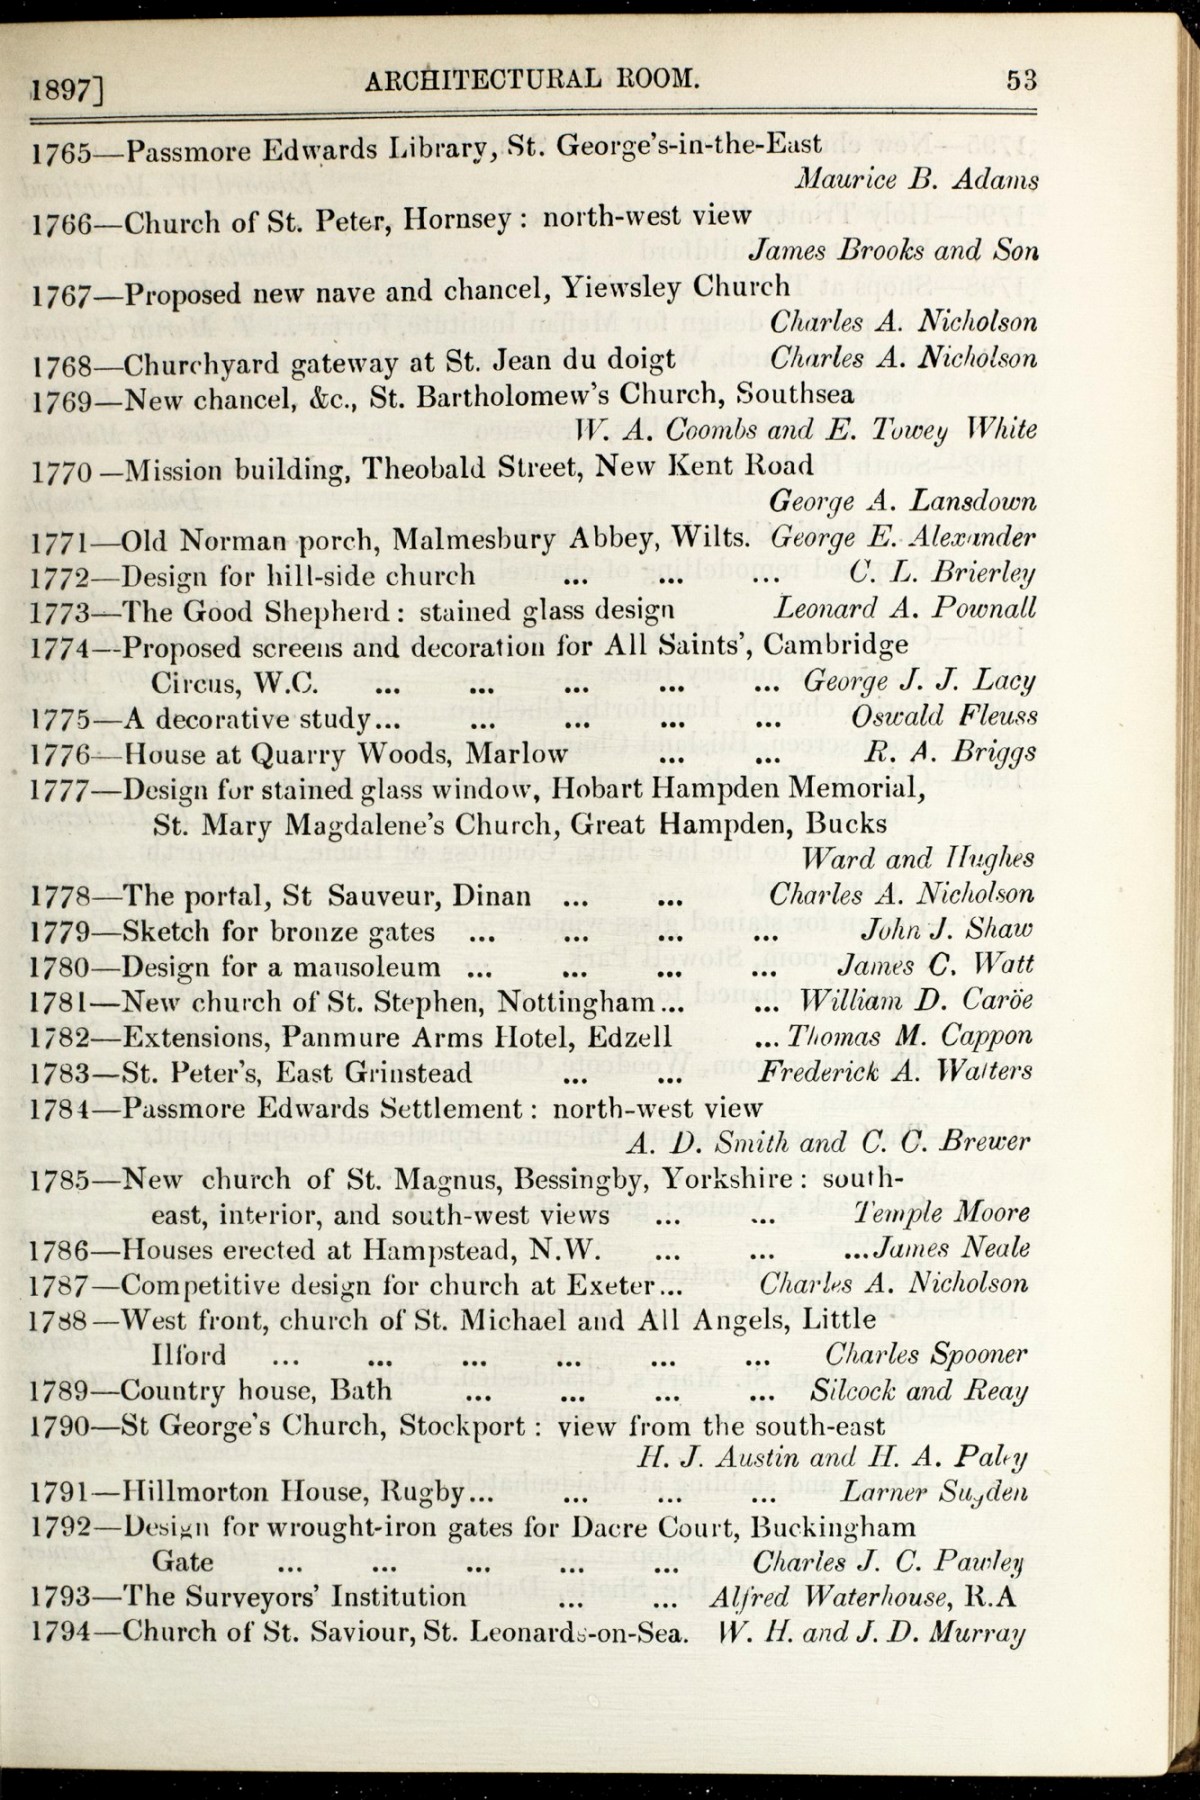 1897]
ARCHITECTURAL ROOM.
53
1765—Passmore Edwards Library, St. George's-in-the-East
Maurice B. Adams
1766—Church of St. Peter, Hornsey : north-west view
James Brooks and Son
1767—Proposed new nave and chancel, Yiewsley Church
Charles A. Nicholson
1768—Churchyard gateway at St. Jean du doigt Charles A. Nicholson
1769—New chancel, &c., St. Bartholomew's Church, Southsea
W. A. Coombs and E. Towey White
1770—Mission building, Theobald Street, New Kent Road
George A. Lansdown
1771—Old Norman porch, Malmesbury Abbey, Wilts. George E. Alexander
1772—Design for hill-side church ... ... ... C. L. Brierley
1773—The Good Shepherd : stained glass design Leonard A. Pownall
1774—Proposed screens and decoration for All Saints', Cambridge
Circus, W.C. ... ... ... ... ... George J. J. Lacy
1775—A decorative study... ... ... ... ... Oswald Fleuss
1776—House at Quarry Woods, Marlow ... ... R. A. Briggs
1777—Design for stained glass window, Hobart Hampden Memorial,
St. Mary Magdalene's Church, Great Hampden, Bucks
Ward and Hughes
1778—The portal, St Sauveur, Dinan ... ... Charles A. Nicholson
1779—Sketch for bronze gates ... ... ... ... John J. Shaw
1780—Design for a mausoleum ... ... ... ... James C. Watt
1781—New church of St. Stephen, Nottingham... ... William D. Caröe
1782—Extensions, Panmure Arms Hotel, Edzell ... Thomas M. Cappon
1783—St. Peter's, East Grinstead ... ... Frederick A. Walters
1784—Passmore Edwards Settlement : north-west view
A. D. Smith and C. C. Brewer
1785—New church of St. Magnus, Bessingby, Yorkshire : south-
east, interior, and south-west views ... ... Temple Moore
1786—Houses erected at Hampstead, N.W. ... ... ...James Neale
1787—Competitive design for church at Exeter... Charles A. Nicholson
1788—West front, church of St. Michael and All Angels, Little
Ilford ... ... ... ... ... ... Charles Spooner
1789—Country house, Bath ... ... ... ... Silcock and Reay
1790—St George's Church, Stockport : view from the south-east
H. J. Austin and H. A. Paley
1791—Hillmorton House, Rugby... ... ... ... Larner Sugden
1792—Design for wrought-iron gates for Dacre Court, Buckingham
Gate ... ... ... ... ... Charles J. C. Pawley
1793—The Surveyors' Institution ... ... Alfred Waterhouse, R.A
1794—Church of St. Saviour, St. Leonards-on-Sea. W. H. and J. D. Murray